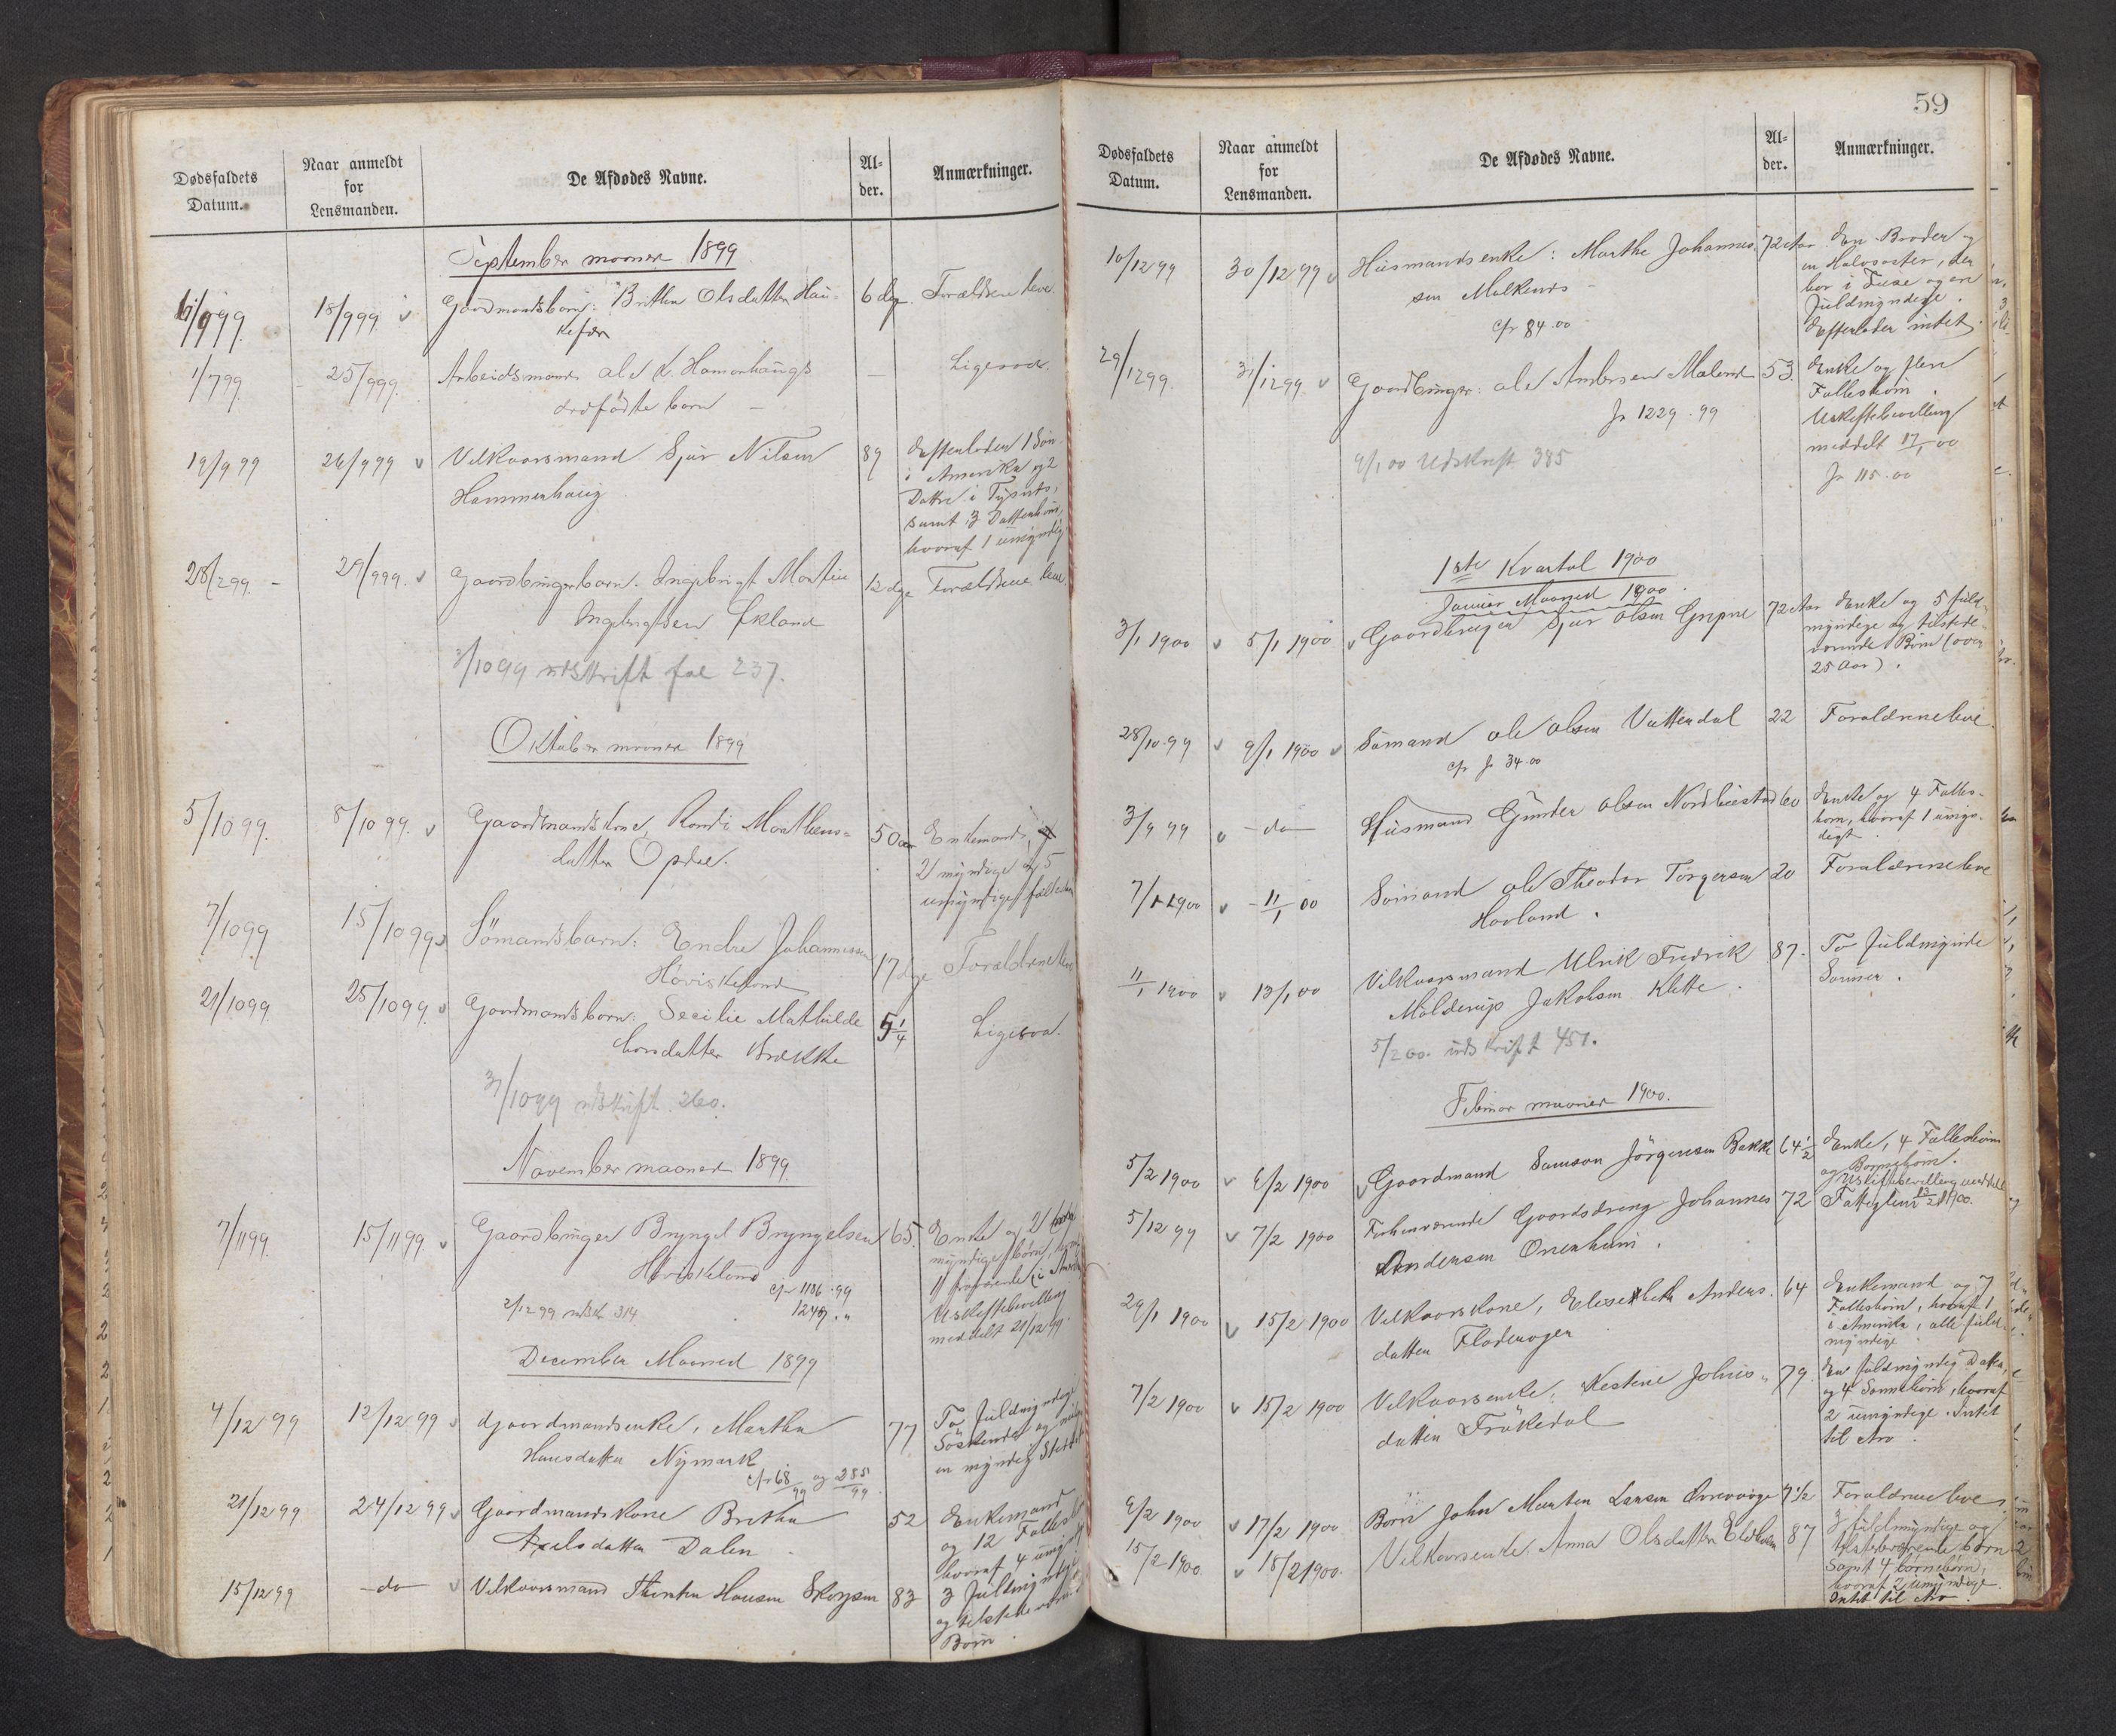 Dødsfaldets
Datum.
Naar anmeldt
for
Lensmanden.
De Afdødes Navne.
Al-
der.
Anmærkninger.
September maaned 1899
6/9 99. 18/9 99. v Gaardmandsbarn: Brithe Olsdatter Hau- 6 dg. Forældrene leve.
kefær
1/7 99. - 25/9 99. Arbeidsmand Ole L. Hammerhaugs — Ligesaa.
dødfødte barn —
19/9 99 26/9 99 v Vilkaarsmand Sjur Nilsen 89 Efterlader 1 Søn
Hammerhaug
i Amerika og 2
Døttre i Tysnes,
samt 3 Datterbørn,
hvoraf 1 umyndig
28/2 99. - 29/9 99. v Gaardbrugerbarn. Ingebrigt Martin 12 dge Forældrene leve.
Ingebrigtsen Økland
2/10 99 udskrift fol 237.
Oktober maaned 1899
5/10 99. 8/10 99. v Gaardmandskone, Randi Mathens- 50 aar Enkemand,
datter Opdal.
2 myndige og 5
umyndige fællesbørn
7/10 99 15/10 99 v Sömandsbarn: Endre Johannessen 17 dge Forældrene leve
Høviskeland
21/10 99. 25/10 99. v Gaardmandsbarn: Secilie Mathilde 5 1/4 Ligesaa.
Larsdatter Brække
31/10 99 udskrift 260.
November maaned 1899.
7/11 99. 15/11 99 v Gaardbruger Bryngel Bryngelsen 65. Enke og 2
Høviskeland cfr 1136.99
myndige børn,
1249. "
2/12 99 udskr 314
Uskiftebevilling
meddelt 21/12 99.
December Maaned 1899
4/12 99 12/12 99 v Gaardmandsenke, Martha 77 To fuldmyndige
Hansdatter Nymark
Söskende og
en myndig
cfr 68/99 og 255/99.
21/12 99 24/12 99 v Gaardmandskone Brithe 52 Enkemand
Axelsdatter Dalen -
og 12 Fællesb
hvoraf 4 umyndig
15/12 99 - do - v Vilkaarsmand Hansen Skorpen 83 3 fuldmyndige
og tilstedeværende
Børn.
59
Dødsfaldets
Datum.
Naar anmeldt
for
Lensmanden.
De Afdødes Navne.
Al-
der.
Anmærkninger.
10/12 99 30/12 99 v Husmandsenke: Marthe Johannes- 72 Aar En Broder og
sen Malkenes -
en Halvsøster, der
bor i Fuse og er
fuldmyndige.
cfr 84.00
Efterlader intet.
29/12 99. 31/12 99 v Gaardbruger: Ole Andersen Malenes 53. Enke og flere
Fællesbørn.
Jr 1229.99
Uskiftebevilling
meddelt 17/1 00
9/1 00 Udskrift 385
Jr 115.00
1ste Kvartal 1900
Januar Maaned 1900.
3/1 1900 v 5/1 1900 v Gaardbruger Sjur Olsen Gripne 72 Aar Enke og 5 fuld-
myndige og tilstede-
værende Børn (over
25 Aar).
28/10.99 v 9/1 1900 v Sömand Ole Olsen Vattendal 22 Forældrene leve.
cfr Jr 34.00
3/9 99 v - do - Husmand Gunder Olsen Nordhuestad 60 Enke og 4 Fælles-
børn, hvoraf 1 umyn-
digt
7/1 1900 v - 11/1 00 Sömand Ole Theodor Torgersen 20 Forældrene leve
Hovland.
11/1 1900 v 13/1 00 Vilkaarsmand Ulrik Fredrik 87. To fuldmyndige
Molderup Jakobsen Klette.
Sønner.
5/2 00. udskrift 451.
Februar maaned 1900.
5/2 1900 v 6/2 1900 v Gaardmand Samson Jörgensen Bakke 64 1/2 Enke, 4 Fællesbørn
og Børnebørn.
Uskiftebevilling meddelt
13/2 1900.
5/12 99 v 7/2 1900 Forhenværende Gaardsdreng Johannes 72 Fattiglem
Andersen Ørrenhuni.
29/1 1900 v 15/2 1900 Vilkaarskone, Elisabeth Anders- 64 Enkemand og 7
datter Flatevagen
Fællesbørn, hvoraf 1
i Amerika, alle fuld-
myndige
7/2 1900 v 15/2 1900 Vilkaarsenke, Kestine Johns- 79. En fuldmyndig Datter,
datter Frökedal
og 4 Sønnebørn, hvoraf
2 umyndige. Intet
til Arv.
6/2 1900 v 17/2 1900 Barn John Marten Larsen Ørrevaage 7 1/2 Forældrene leve.
15/2 1900. v 18/2 1900. Vilkaarsenke, Anna Olsdatter 87 3 fuldmyndige og
tilstedeværende børn
samt 4 børnebørn,
hvoraf 2 umyndige.
Intet til Arv.